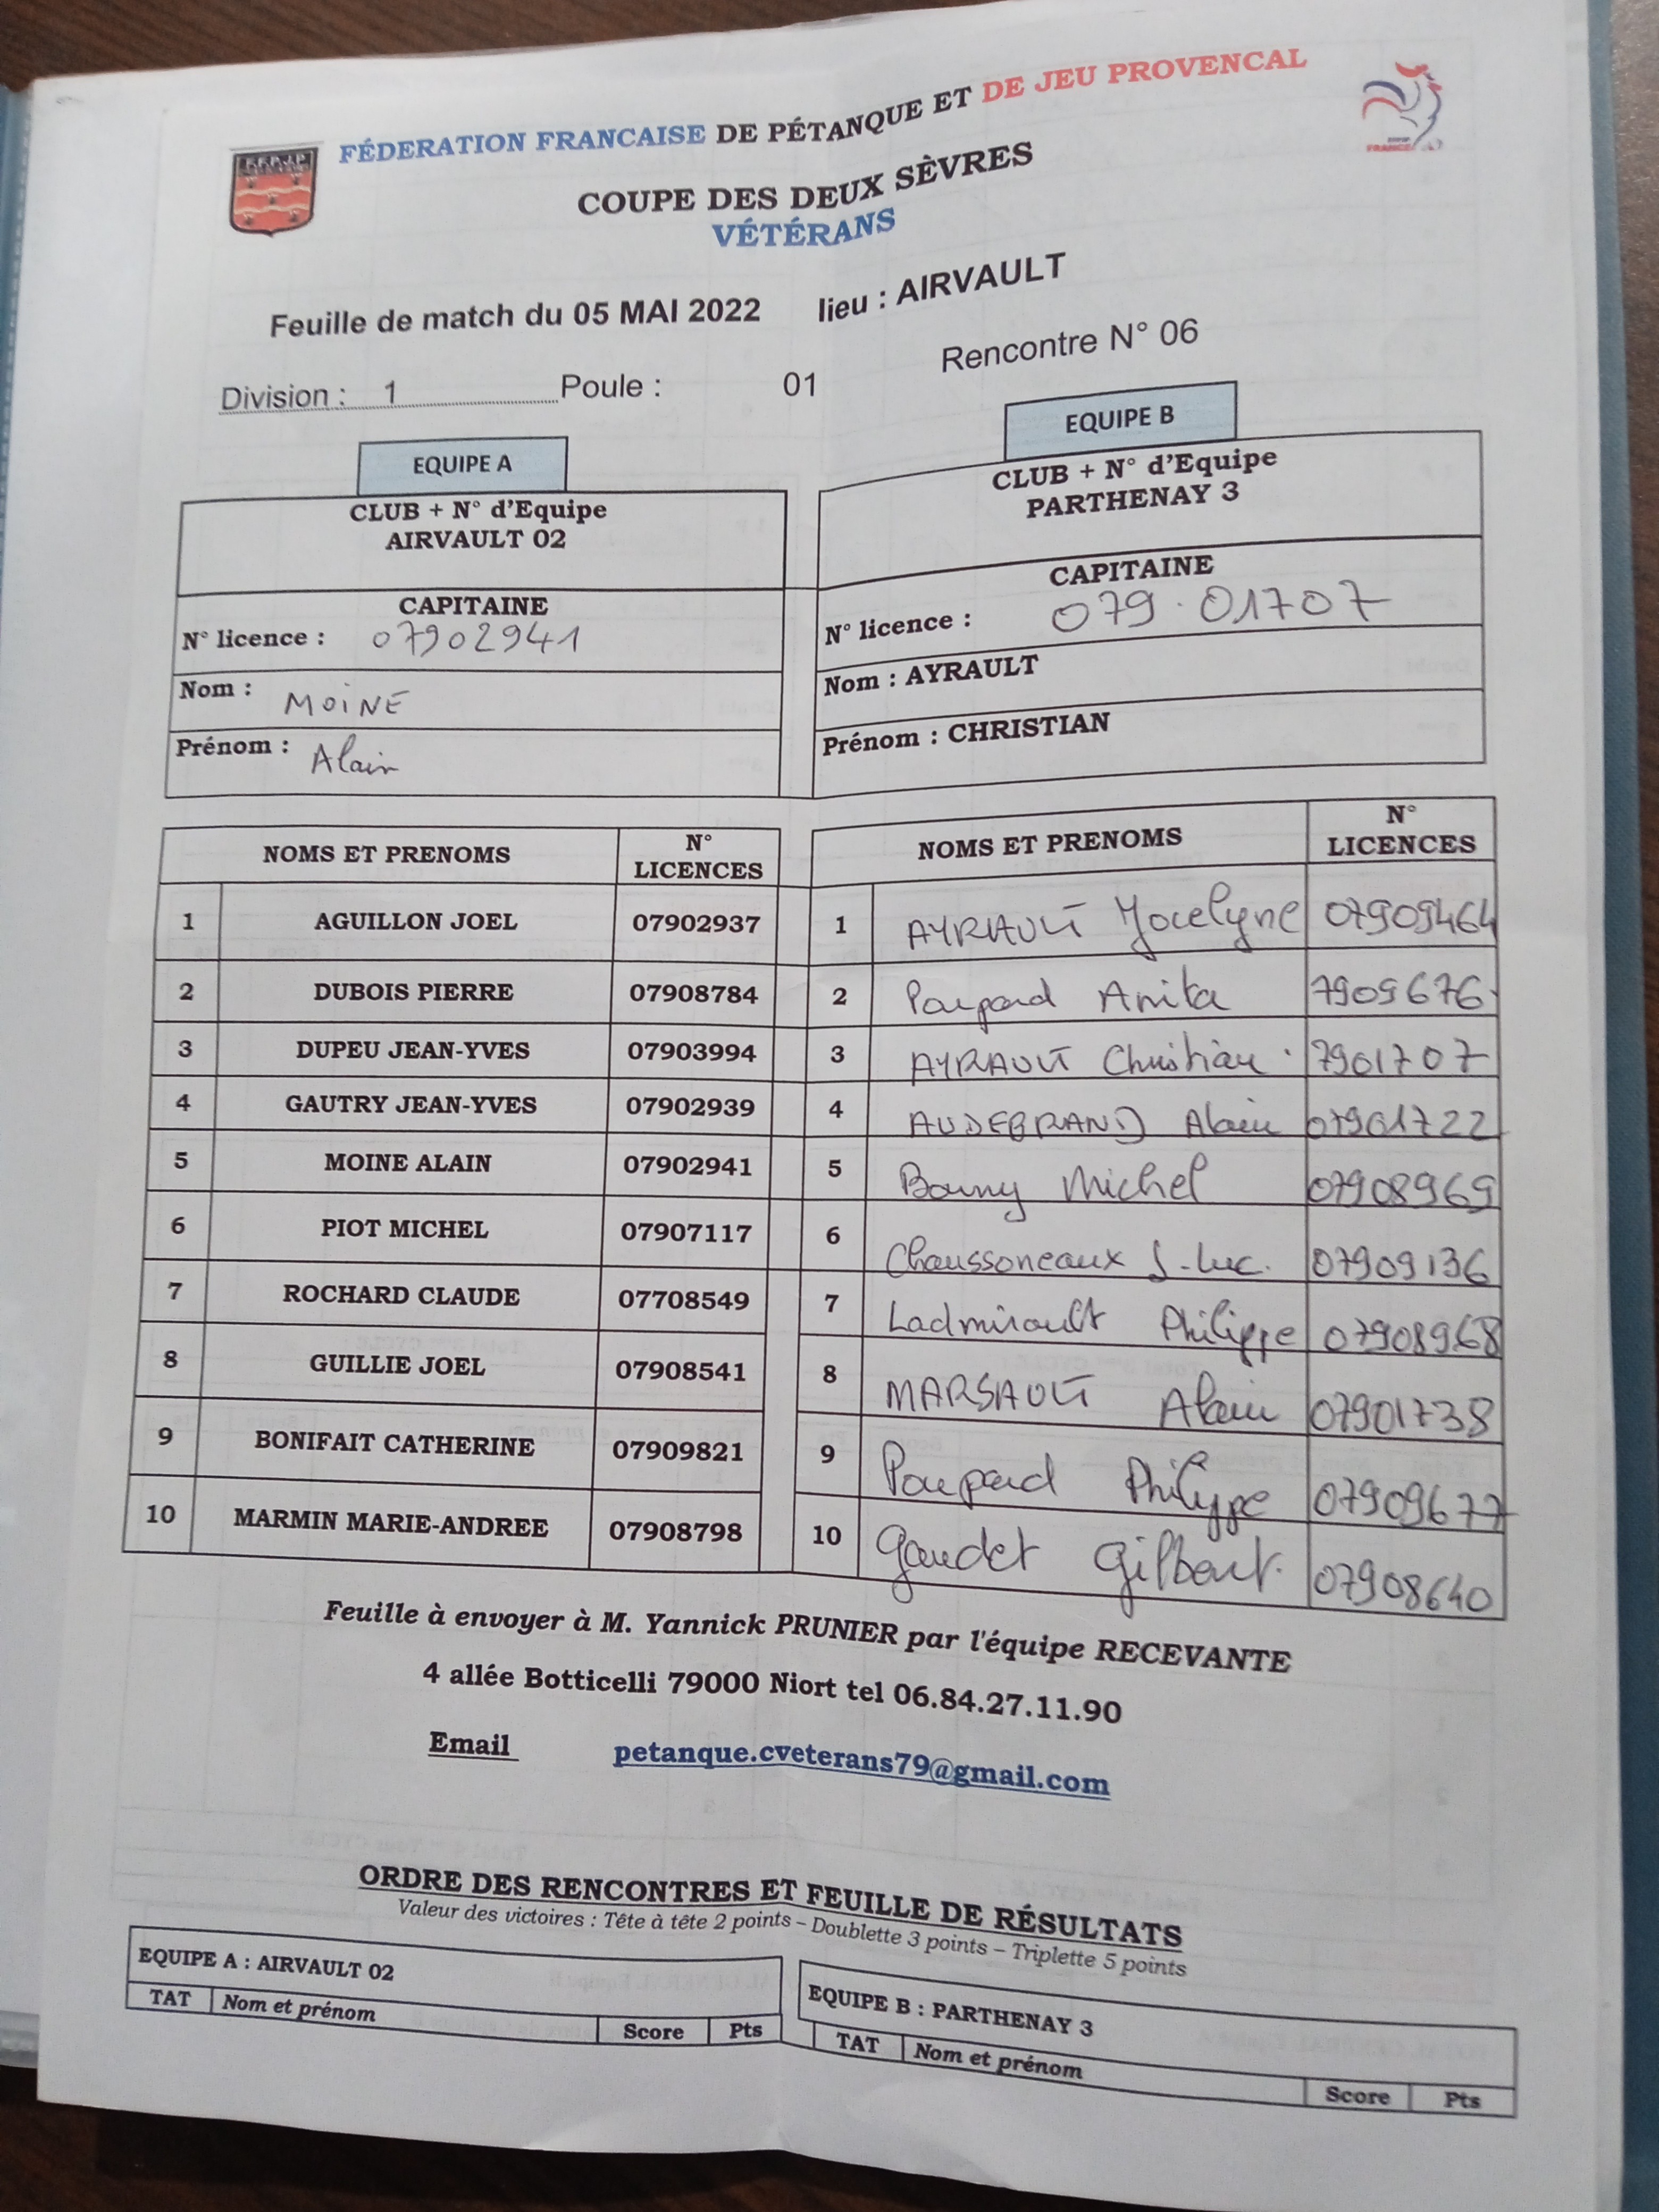 FÉDERATION FRANCAISE DE PÉTANQUE ET DE JEU PROVENCAL
COUPE DES DEUX SÈVRES
VÉTÉRANS
FRANCE
Feuille de match du 05 MAI 2022 lieu : AIRVAULT
Division : 1 Poule : 01 Rencontre N° 06
EQUIPE A
CLUB + N° d'Equipe
AIRVAULT 02
CAPITAINE
N° licence : 07902941
Nom : MOINE
Prénom : Alain
EQUIPE B
CLUB + N° d'Equipe
PARTHENAY 3
CAPITAINE
N° licence : 079.01707
Nom : AYRAULT
Prénom : CHRISTIAN
NOMS ET PRENOMS N° LICENCES
1 AGUILLON JOEL 07902937
2 DUBOIS PIERRE 07908784
3 DUPEU JEAN-YVES 07903994
4 GAUTRY JEAN-YVES 07902939
5 MOINE ALAIN 07902941
6 PIOT MICHEL 07907117
7 ROCHARD CLAUDE 07708549
8 GUILLIE JOEL 07908541
9 BONIFAIT CATHERINE 07909821
10 MARMIN MARIE-ANDREE 07908798
NOMS ET PRENOMS N° LICENCES
1 AYRAULT Jocelyne 07909464
2 Poupard Anita 7909676
3 AYRAULT Christian 7901707
4 AUDEBRAND Alain 07901722
5 Michel 07908969
6 Chaussoneaux J-Luc. 07909136
7 Ladmirault Philippe 07908968
8 MARSAULT Alain 07901738
9 Poupard Philippe 07909677
10 Gaudet Gilbert. 07908640
Feuille à envoyer à M. Yannick PRUNIER par l'équipe RECEVANTE
4 allée Botticelli 79000 Niort tel 06.84.27.11.90
Email petanque.cveterans79@gmail.com
ORDRE DES RENCONTRES ET FEUILLE DE RÉSULTATS
Valeur des victoires : Tête à tête 2 points – Doublette 3 points – Triplette 5 points
EQUIPE A : AIRVAULT 02
TAT Nom et prénom Score Pts
EQUIPE B : PARTHENAY 3
TAT Nom et prénom Score Pts